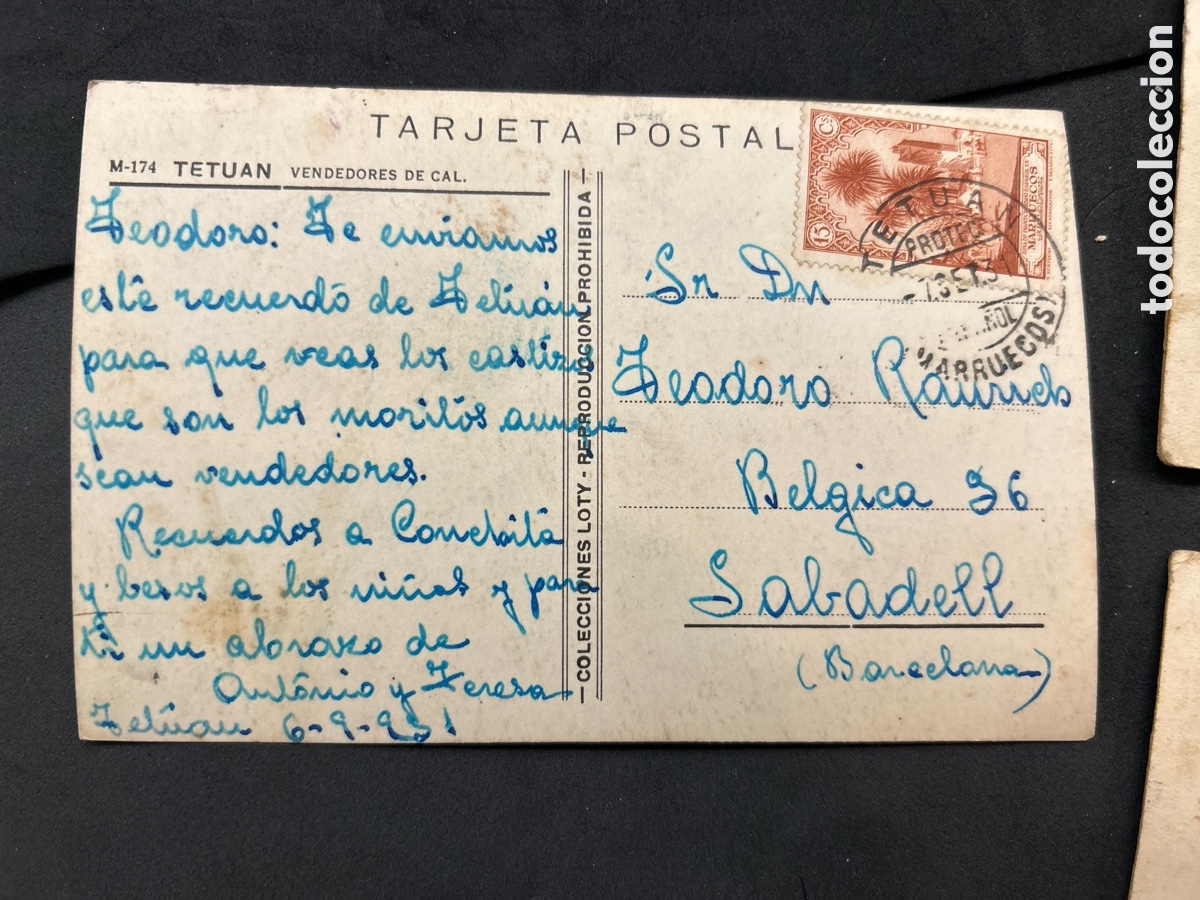 TARJETA POSTAL
M-174 TETUAN VENDEDORES DE CAL.
Teodoro: Te enviamos
esté recuerdó de Tetuán
para que veas los castizos
que son los moritos aunque
sean vendedores.
Recuerdos a Conchita
y besos a los niños y para
ti un abrazo de
António y Teresa
Tetúan 6-9-951
COLECCIONES LOTY - REPRODUCCION PROHIBIDA
15 Cs
MARRUECOS
TETUAN
PROTEC
7 SET
ÑOL
MARRUECOS
Sr Dn
Teodoro
Belgica 36
Sabadell
(Barcelona)
todocoleccion